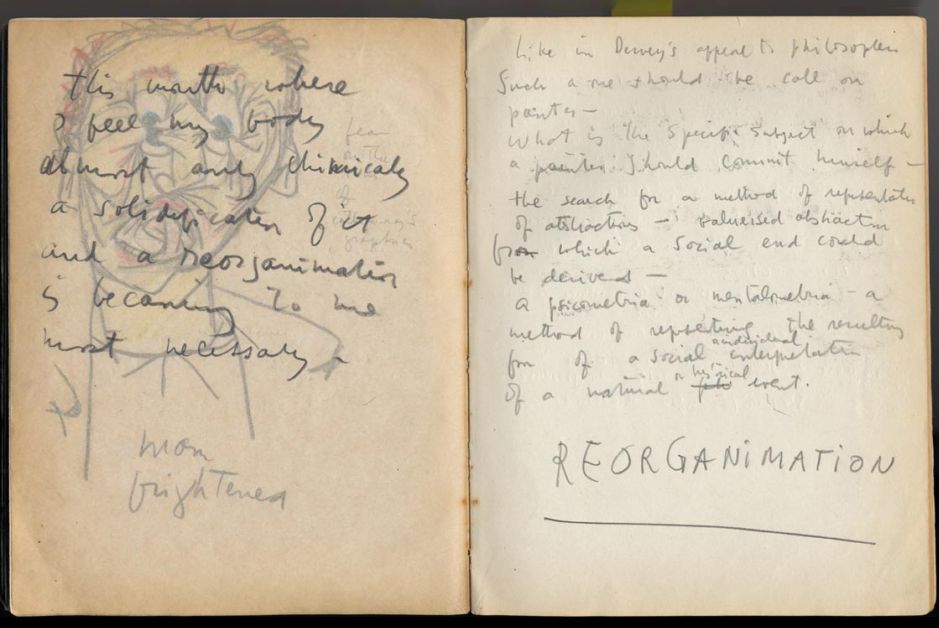 this month where
I feel my body
almost only chimicaly
a solidification of it
and a reorganimation
is becaming to me
most necessary -
fear
of
man
frightened
like in Dewey's appeal to philosophers
Such a one should be call on
painter -
What is the specific subject on which
a painter should commit himself -
the search for a method of representation
of abstraction - abstraction
from which a social end could
be derived -
a psicometria or mentalmetria - a
method of representing the resulting
from of a social individual interpretation
of a natural or historical event.
REORGANIMATION